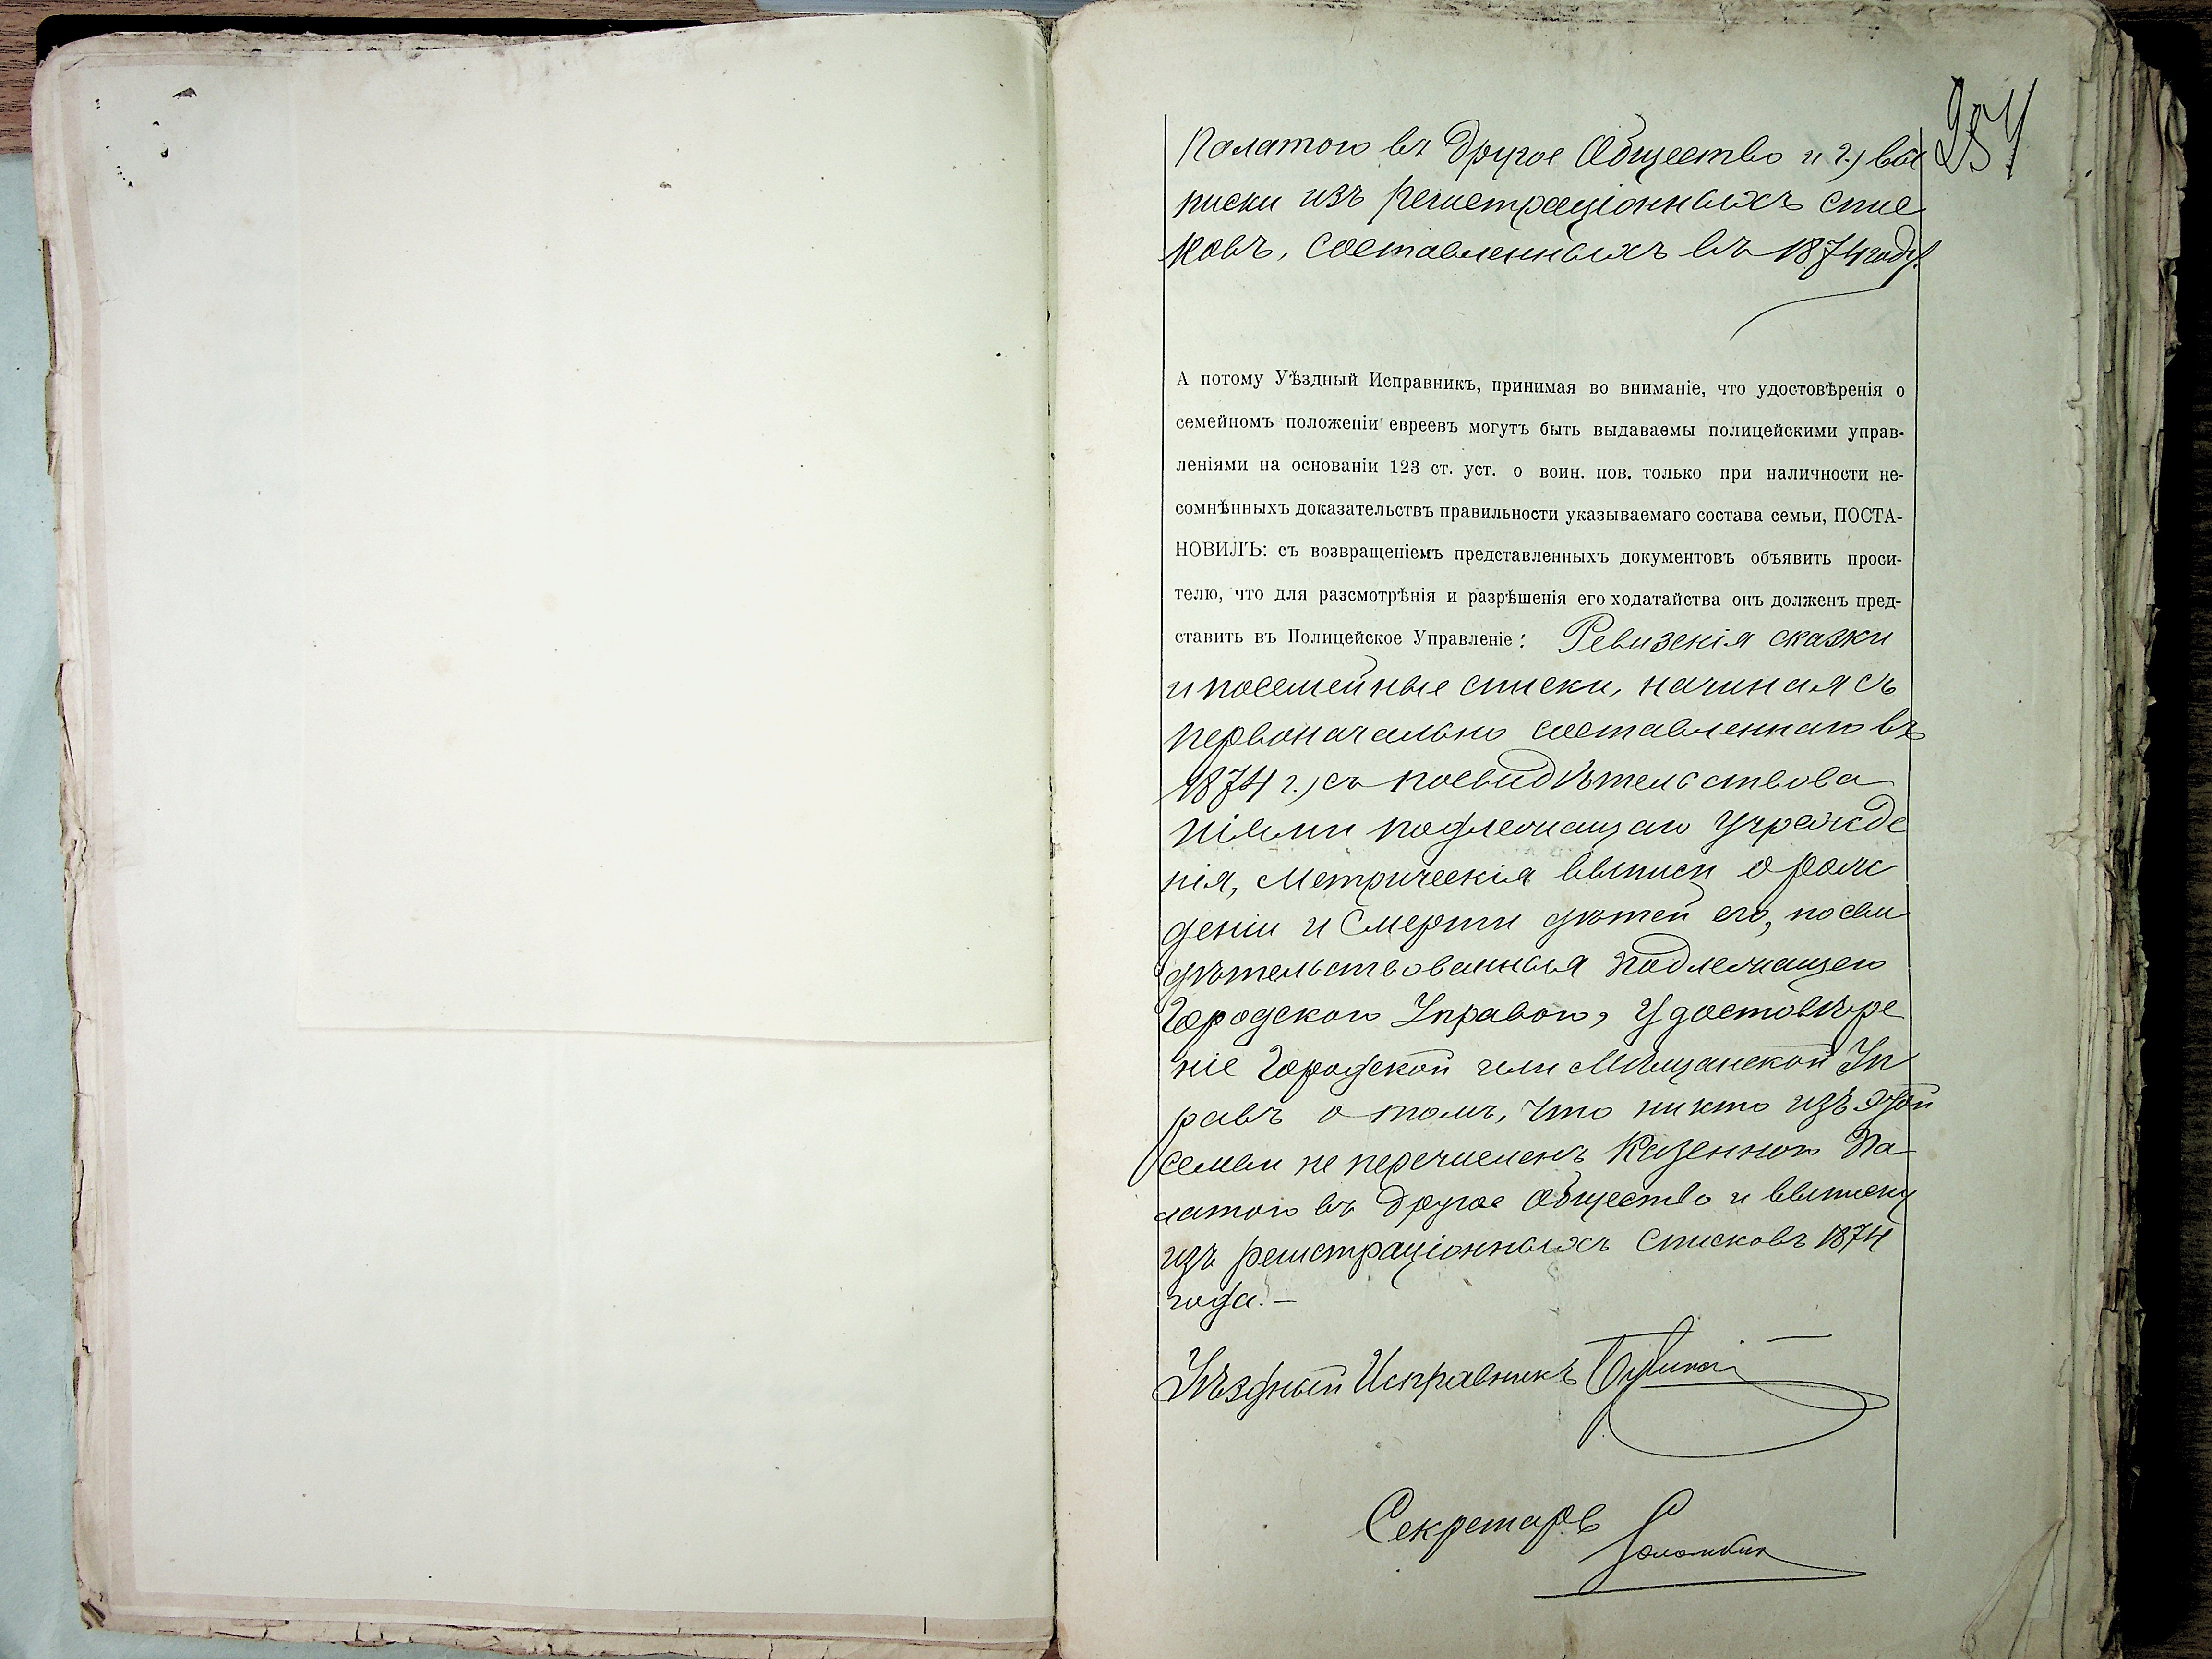 254
Палатою въ другое Общество и г.) вы
писки изъ регистраціонныхъ спис
ковъ, составленныхъ въ 1874 году.
А потому Уѣздный Исправникъ, принимая во вниманіе, что удостовѣренія о
семейномъ положеніи евреевъ могутъ быть выдаваемы полицейскими управ-
леніями на основаніи 123 ст. уст. о воин. пов. только при наличности не-
сомнѣнныхъ доказательствъ правильности указываемаго состава семьи, ПОСТА-
НОВИЛЪ: съ возвращеніемъ представленныхъ документовъ объявить проси-
телю, что для разсмотрѣнія и разрѣшенія его ходатайства онъ долженъ пред-
ставить въ Полицейское Управленіе: Ревизскія сказки
и посемейные списки, начиная съ
первоначально составленнаго въ
1874 г.) съ посвидѣтельствова
ніями подлежащаго учрежде
нія, метрическія выписи о рож
деніи и смерти дѣтей его, посви
дѣтельствованныя подлежащею
Городскою Управою, удостовѣре
ніе Городской или Мѣщанской Уп
равъ о томъ, что никто изъ этой
семьи не перечисленъ Казенною Па
латою въ другое Общество и выписку
изъ регистраціонныхъ списковъ 1874
года. —
Уѣздный Исправникъ
Секретарь